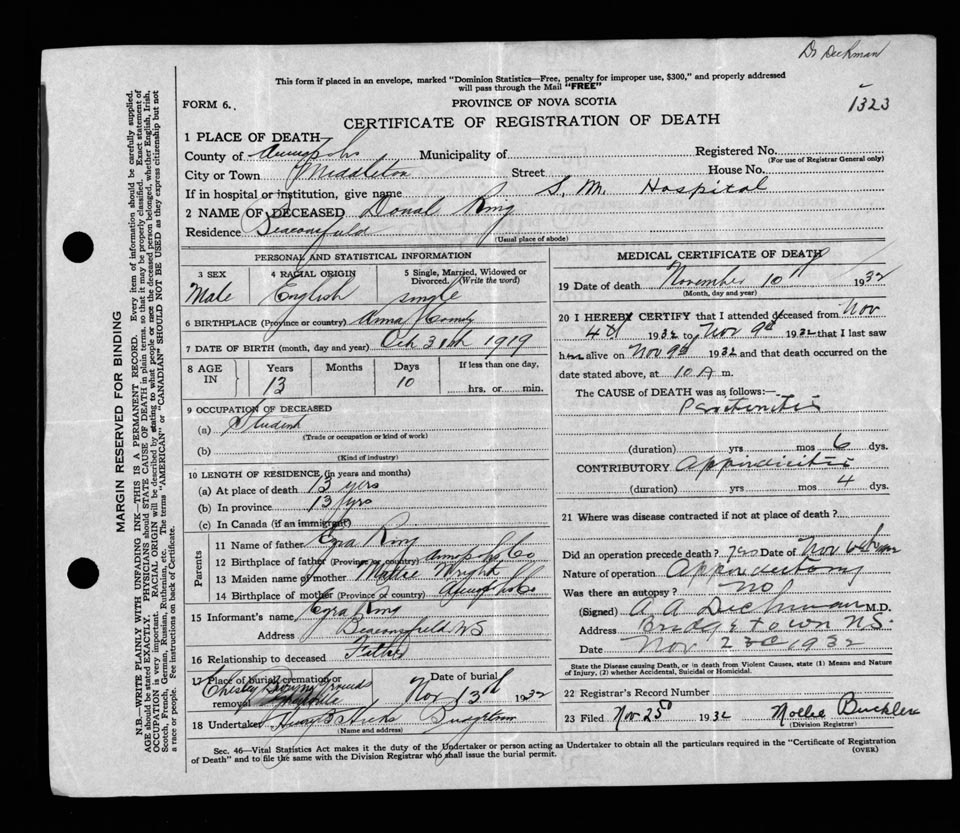 Dr Dechman
This form if placed in an envelope, marked "Dominion Statistics—Free, penalty for improper use, $300," and properly addressed
will pass through the Mail "FREE"
FORM 6.
PROVINCE OF NOVA SCOTIA
1323
CERTIFICATE OF REGISTRATION OF DEATH
1 PLACE OF DEATH
County of Annap Co Municipality of Registered No.
(For use of Registrar General only)
City or Town Middleton Street House No.
If in hospital or institution, give name S. M. Hospital
2 NAME OF DECEASED Donal King
Residence Beaconsfield
(Usual place of abode)
PERSONAL AND STATISTICAL INFORMATION
3 SEX 4 RACIAL ORIGIN 5 Single, Married, Widowed or
Divorced. (Write the word)
Male English single
6 BIRTHPLACE (Province or country) Anna County
7 DATE OF BIRTH (month, day and year) Oct 31st 1919
8 AGE IN Years Months Days If less than one day,
13 10 hrs. or min.
9 OCCUPATION OF DECEASED
(a) Student
(Trade or occupation or kind of work)
(b)
(Kind of industry)
10 LENGTH OF RESIDENCE (in years and months)
(a) At place of death 13 yrs
(b) In province 13 yrs
(c) In Canada (if an immigrant)
Parents
11 Name of father Ezra King
12 Birthplace of father (Province or country) Annap Co
13 Maiden name of mother Wright
14 Birthplace of mother (Province or country) Annap Co
15 Informant's name Ezra King
Address Beaconsfield NS
16 Relationship to deceased Father
17 Place of burial, cremation or removal Date of burial
Chesley Nov 13th 1932
18 Undertaker Henry B Hicks Bridgetown
(Name and address)
MEDICAL CERTIFICATE OF DEATH
19 Date of death November 10th 1932
(Month, day and year)
20 I HEREBY CERTIFY that I attended deceased from Nov
4th 1932 to Nov 9th 1932 that I last saw
him alive on Nov 9th 1932 and that death occurred on the
date stated above, at 10 A m.
The CAUSE OF DEATH was as follows:—
Peritonitis
(duration) yrs mos 6 dys.
CONTRIBUTORY Appendicitis
(duration) yrs mos 4 dys.
21 Where was disease contracted if not at place of death?
Did an operation precede death? yes Date of Nov
Nature of operation Appendectomy
Was there an autopsy? no
(Signed) A A Dechman M.D.
Address Bridgetown N.S.
Date Nov 23rd 1932
State the Disease causing Death, or in death from Violent Causes, state (1) Means and Nature
of Injury, (2) whether Accidental, Suicidal or Homicidal.
22 Registrar's Record Number
23 Filed Nov 25 1932 Nollie Buckler
(Division Registrar)
Sec. 46—Vital Statistics Act makes it the duty of the Undertaker or person acting as Undertaker to obtain all the particulars required in the "Certificate of Registration
of Death" and to file the same with the Division Registrar who shall issue the burial permit.
(OVER)
MARGIN RESERVED FOR BINDING
N.B.—WRITE PLAINLY WITH UNFADING INK—THIS IS A PERMANENT RECORD. Every item of information should be carefully supplied.
AGE should be stated EXACTLY. PHYSICIANS should STATE CAUSE OF DEATH in plain terms, so that it may be properly classified. Exact statement of
OCCUPATION is very important. RACIAL ORIGIN will be described by stating to what people or race the deceased person belonged, whether English, Irish,
Scotch, French, German, Russian, Ruthenian, etc. The terms "AMERICAN" or "CANADIAN" SHOULD NOT BE USED as they express citizenship but not
a race or people. See instructions on back of Certificate.